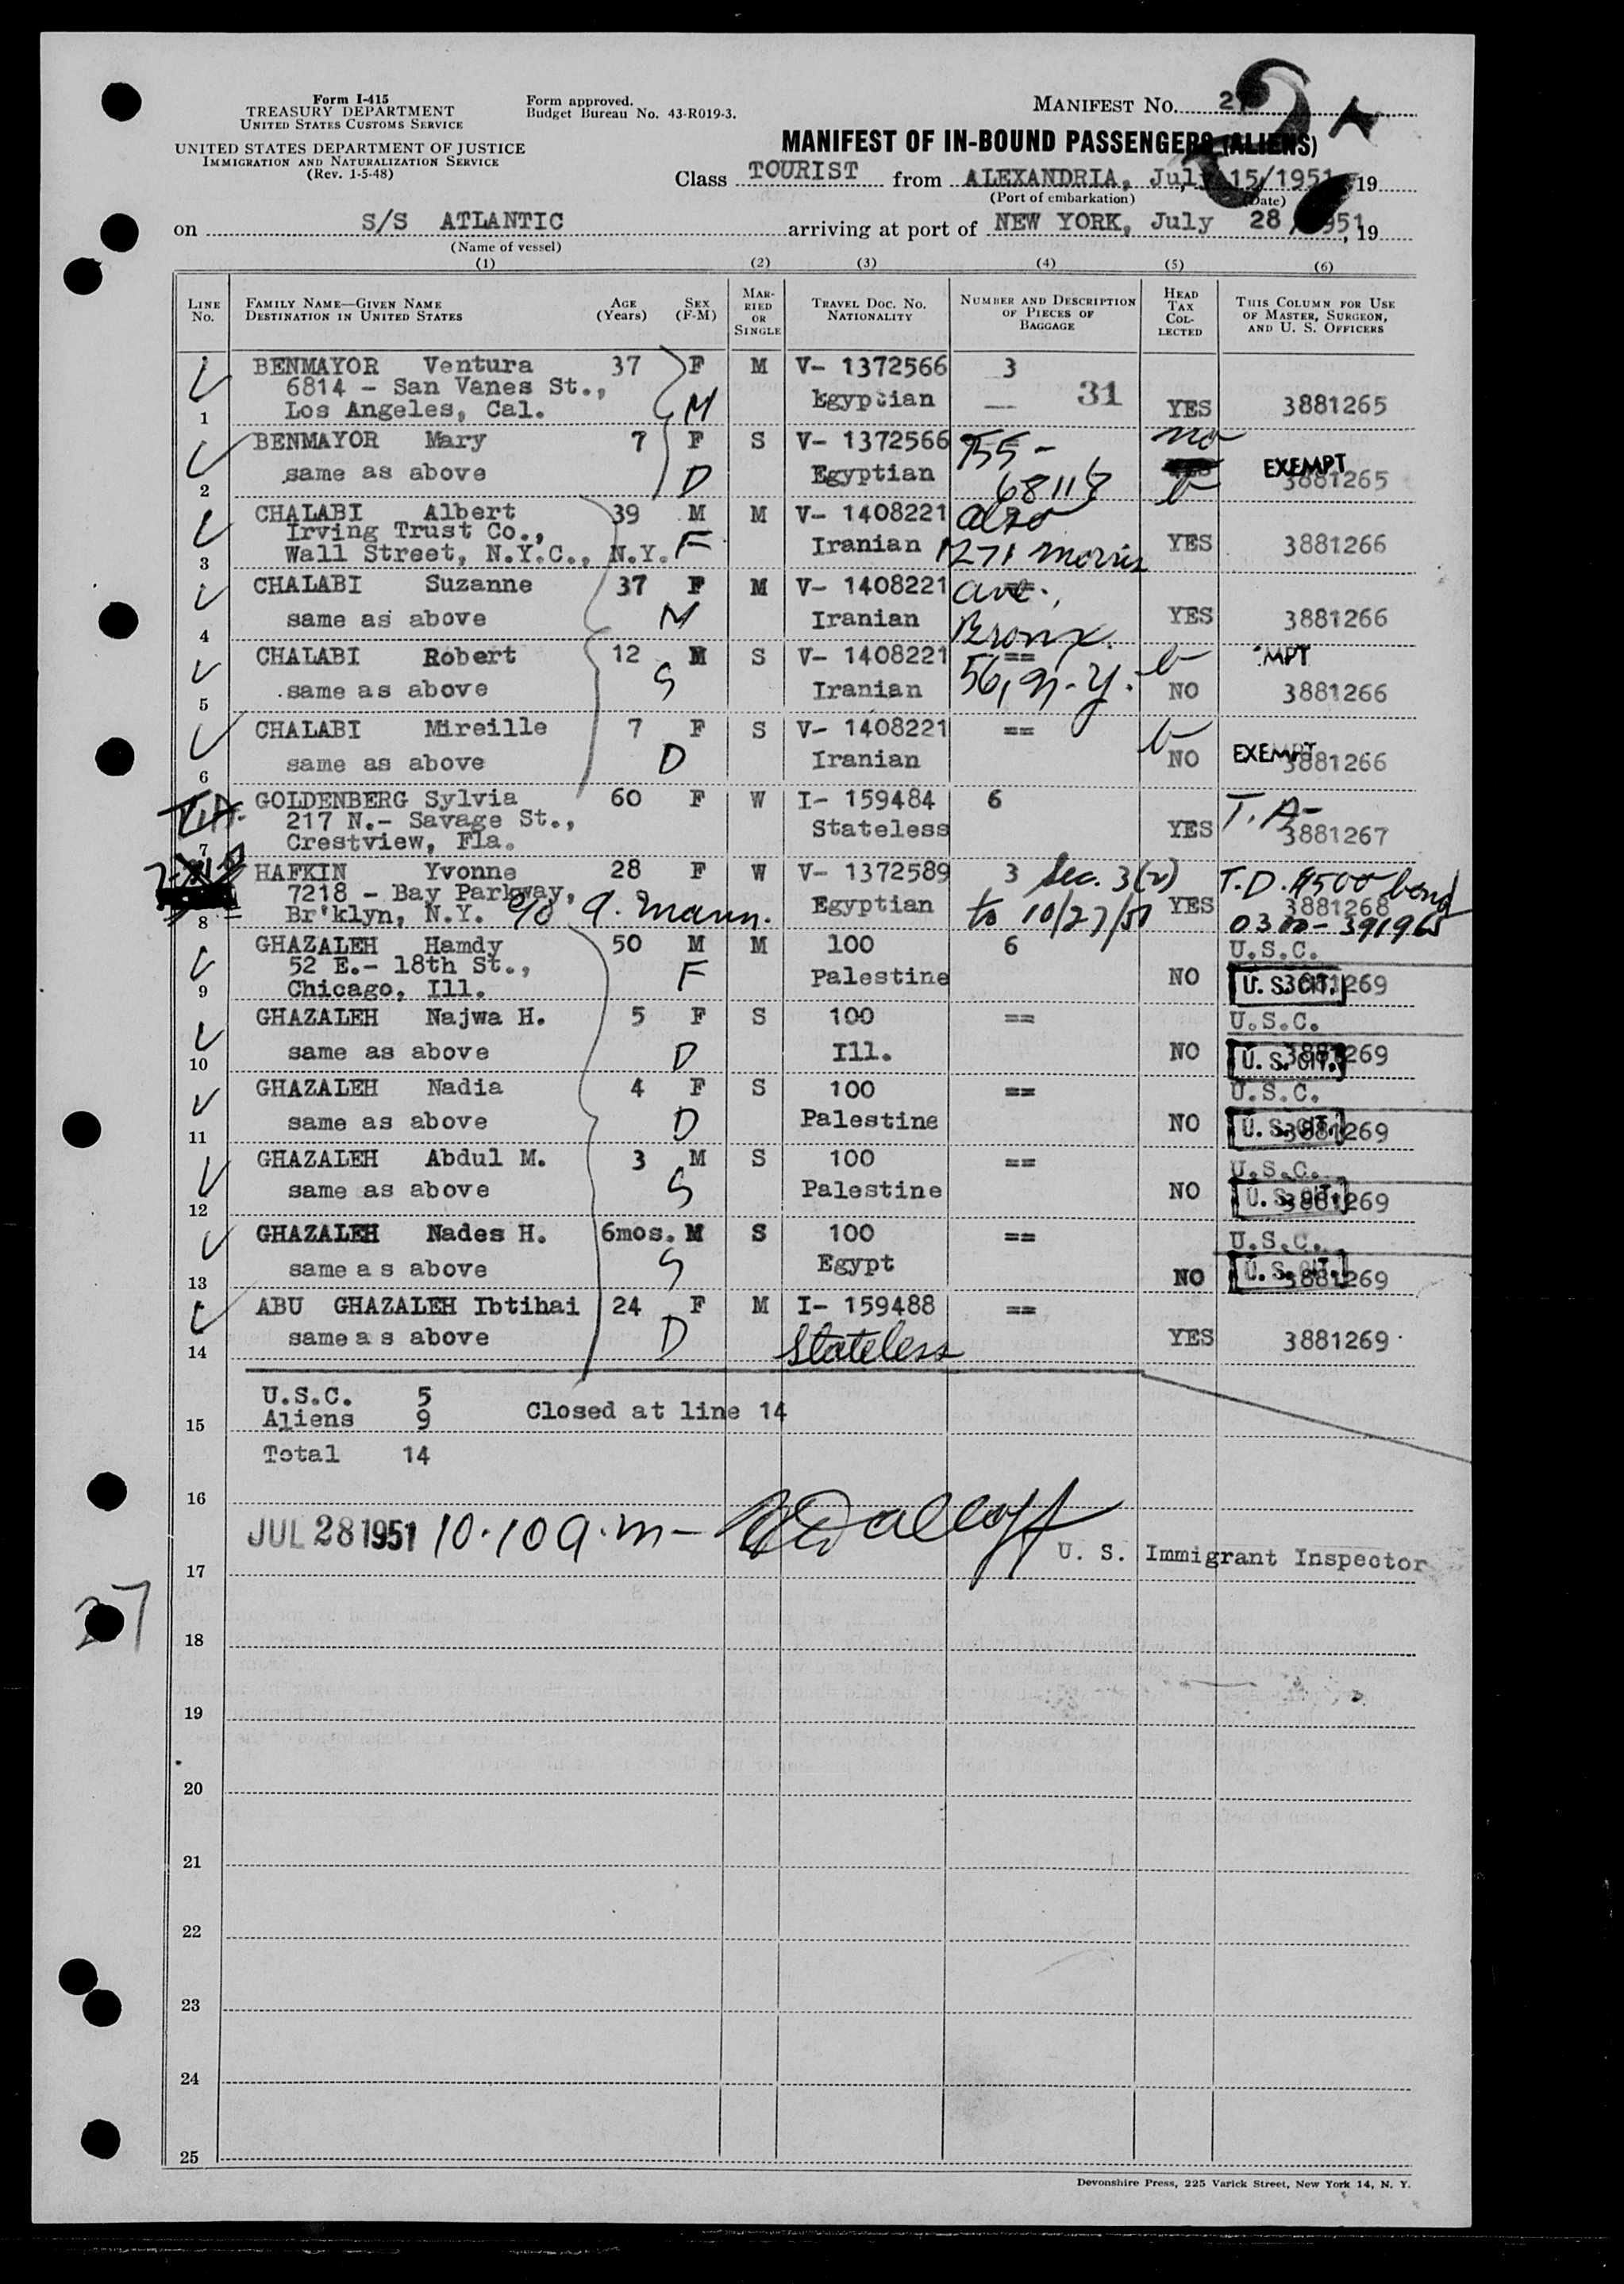 Form I-415
TREASURY DEPARTMENT
UNITED STATES CUSTOMS SERVICE
UNITED STATES DEPARTMENT OF JUSTICE
IMMIGRATION AND NATURALIZATION SERVICE
(Rev. 1-5-48)
Form approved.
Budget Bureau No. 43-R019-3.
MANIFEST NO.
MANIFEST OF IN-BOUND PASSENGERS (ALIENS)
Class TOURIST from ALEXANDRIA, July 15/1951, 19
(Port of embarkation) (Date)
on S/S ATLANTIC arriving at port of NEW YORK, July 28/1951, 19
(Name of vessel)
(1) (2) (3) (4) (5) (6)
LINE No. FAMILY NAME—GIVEN NAME DESTINATION IN UNITED STATES AGE (Years) SEX (F-M) MARRIED OR SINGLE TRAVEL DOC. NO. NATIONALITY NUMBER AND DESCRIPTION OF PIECES OF BAGGAGE HEAD TAX COLLECTED THIS COLUMN FOR USE OF MASTER, SURGEON, AND U. S. OFFICERS
BENMAYOR Ventura 37 F M V- 1372566 3
6814 - San Vanes St., M Egyptian 31
1 Los Angeles, Cal. YES 3881265
BENMAYOR Mary 7 F S V- 1372566 T55- no
same as above D Egyptian 68118 EXEMPT
2 3881265
CHALABI Albert 39 M M V- 1408221 also
Irving Trust Co., F Iranian 1271 Morris YES 3881266
3 Wall Street, N.Y.C., N.Y.
CHALABI Suzanne 37 F M V- 1408221 ave.,
4 same as above M Iranian Bronx. YES 3881266
CHALABI Robert 12 M S V- 1408221 ==
5 same as above S Iranian 56, N.Y. NO 3881266
CHALABI Mireille 7 F S V- 1408221 ==
6 same as above D Iranian NO EXEMPT 3881266
T.A. GOLDENBERG Sylvia 60 F W I- 159484 6 T.A-
217 N.- Savage St., Stateless YES 3881267
7 Crestview, Fla.
HAFKIN Yvonne 28 F W V- 1372589 3 Sec. 3(2) T.D. $500 bond
7218 - Bay Parkway, Egyptian to 10/27/51 YES 3881268
8 Br'klyn, N.Y. c/o A. Mann. 0300-391965
GHAZALEH Hamdy 50 M M 100 6 U.S.C.
52 E.- 18th St., F Palestine NO U. S. CIT. 3881269
9 Chicago, Ill.
GHAZALEH Najwa H. 5 F S 100 == U.S.C.
10 same as above D Ill. NO U. S. CIT. 3881269
GHAZALEH Nadia 4 F S 100 == U.S.C.
11 same as above D Palestine NO U. S. CIT. 3881269
GHAZALEH Abdul M. 3 M S 100 == U.S.C.
12 same as above S Palestine NO U. S. CIT. 3881269
GHAZALEH Nades H. 6mos. M S 100 == U.S.C.
13 same a s above S Egypt NO U. S. CIT. 3881269
ABU GHAZALEH Ibtihai 24 F M I- 159488 ==
14 same a s above D Stateless YES 3881269
U.S.C. 5
15 Aliens 9 Closed at line 14
Total 14
16
JUL 28 1951 10.10 a.m-
U. S. Immigrant Inspector
17
27
18
19
20
21
22
23
24
25
Devonshire Press, 225 Varick Street, New York 14, N. Y.